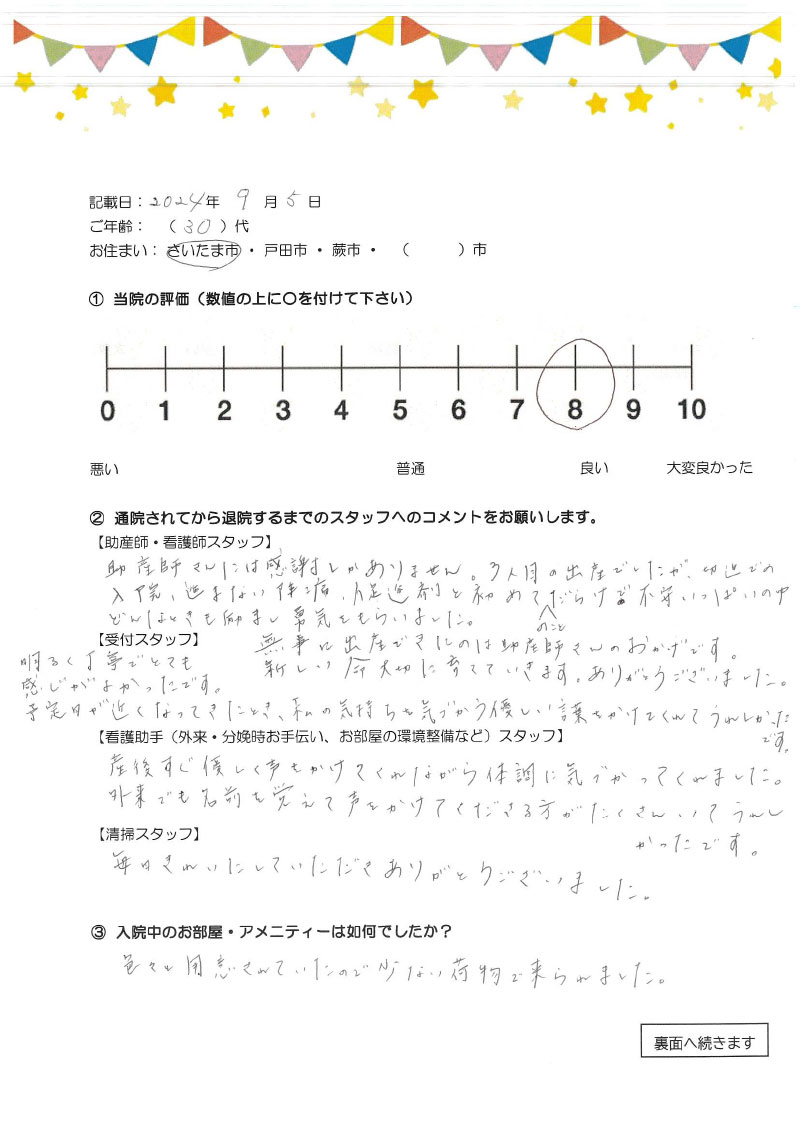 記載日：2024年 9 月 5 日
ご年齢： （ 30 ）代
お住まい： さいたま市 ・ 戸田市 ・ 蕨市 ・ （ ）市
① 当院の評価（数値の上に〇を付けて下さい）
0 1 2 3 4 5 6 7 8 9 10
悪い 普通 良い 大変良かった
② 通院されてから退院するまでのスタッフへのコメントをお願いします。
【助産師・看護師スタッフ】
助産師さんには感謝しかありません。3人目の出産でしたが、切迫での
入院、進まない陣痛、促進剤と初めてのことだらけで不安いっぱいの中
どんなときも励まし勇気をもらいました。
無事に出産できたのは助産師さんのおかげです。
新しい命大切に育てていきます。ありがとうございました。
【受付スタッフ】
明るく丁寧でとても
感じがよかったです。
予定日が近くなってきたとき、私の気持ちを気づかう優しい言葉をかけてくれてうれしかった
です。
【看護助手（外来・分娩時お手伝い、お部屋の環境整備など）スタッフ】
産後すぐ優しく声をかけてくれながら体調に気づかってくれました。
外来でも名前を覚えて声をかけてくださる方がたくさんいてうれし
かったです。
【清掃スタッフ】
毎日きれいにしていただきありがとうございました。
③ 入院中のお部屋・アメニティーは如何でしたか？
色々と用意されていたので少ない荷物で来られました。
裏面へ続きます